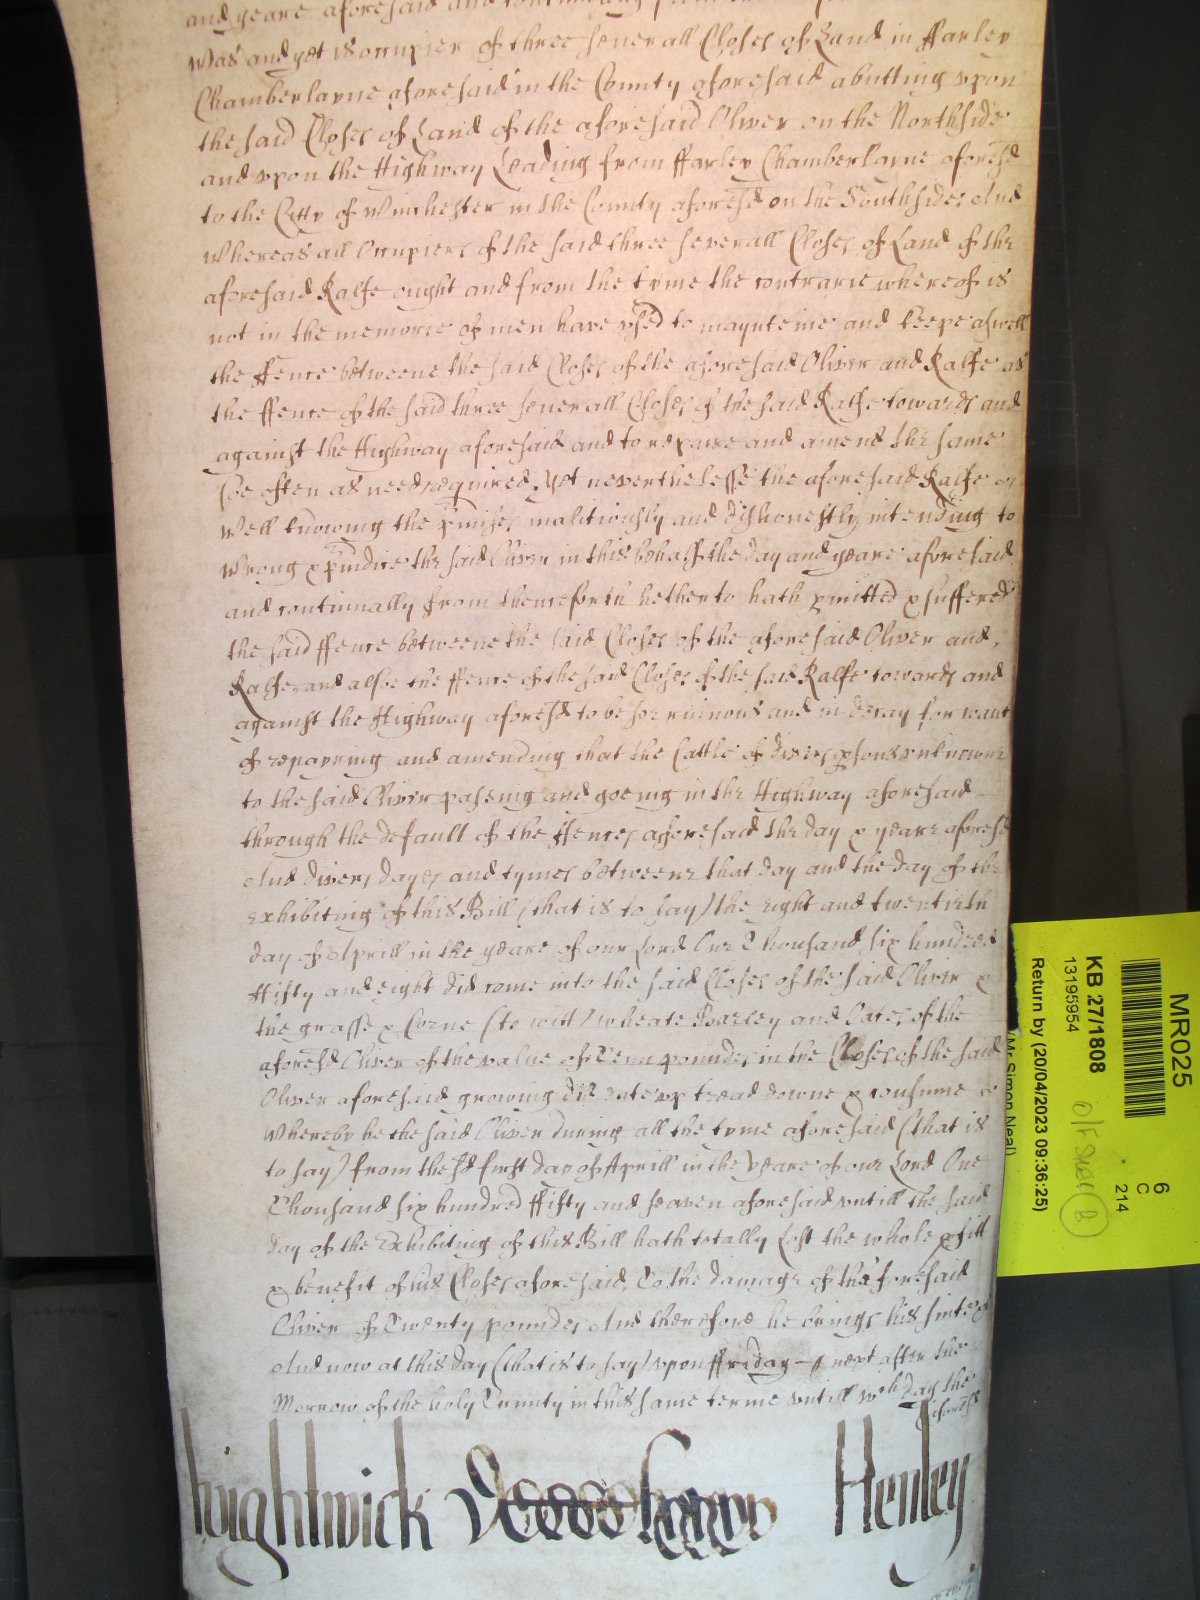 and yeare aforesaid and continually from
was and yet is occupier of three severall Closes of Land in ffarley
Chamberlayne aforesaid in the County aforesaid abutting upon
the said Closes of Land of the aforesaid Oliver on the Northside
and upon the Highway Leading from ffarley Chamberlayne aforesd
to the Citty of Winchester in the County aforesd on the Southside, And
whereas all Occupiers of the said three severall Closes of Land of the
aforesaid Ralfe ought and from the tyme the contrarie whereof is
not in the memorie of men have used to maynteine and keepe aswell
the ffence betweene the said Closes of the aforesaid Oliver and Ralfe as
the ffence of the said three severall Closes of the said Ralfe towards and
against the Highway aforesaid and to repaire and amend the same
soe often as need required, Yet neverthelesse the aforesaid Ralfe
well knowing the pmisses malitiously and dishonestly intending to
wrong & pjudice the said Oliver in this behalfe the day and yeare aforesaid
and continually from thenceforth hetherto hath pmitted & suffered
the said ffence betweene the said Closes of the aforesaid Oliver and
Ralfe and alsoe the ffence of the said Closes of the said Ralfe towards and
against the Highway aforesd to be soe ruinous and in decay for want
of repayring and amending that the Cattle of divers psons unknowne
to the said Oliver passing and goeing in the Highway aforesaid
through the default of the ffences aforesaid the day & yeare aforesd
And divers dayes and tymes betweene that day and the day of the
exhibiting of this Bill (that is to say) the eight and twentieth
day of Aprill in the yeare of our Lord One Thousand six hundred
ffifty and eight did come into the said Closes of the said Oliver &
the grasse & Corne (to witt) wheate Barley and Oates of the
aforesd Oliver of the value of Tenn pounds in the Closes of the said
Oliver aforesaid growing did eate up tread downe & consume
whereby he the said Oliver during all the tyme aforesaid (that is
to say) from the sd first day of Aprill in the Yeare of our Lord One
Thousand six hundred ffifty and seaven aforesaid untill the said
day of the Exhibiting of this Bill hath totally Lost the whole pfitt
& benefit of his Closes aforesaid, To the damage of the foresaid
Oliver of Twenty pounds And therefore he brings his suite &c
And now at this day (that is to say) upon ffriday next after the
Morrow of the holy Trinity in this same terme untill wch day the
aforesd
hightwick Henley
MR025
6
C
214
KB 27/1808
13195954
Return by (20/04/2023 09:36:25)
(Mr Simon Neal)